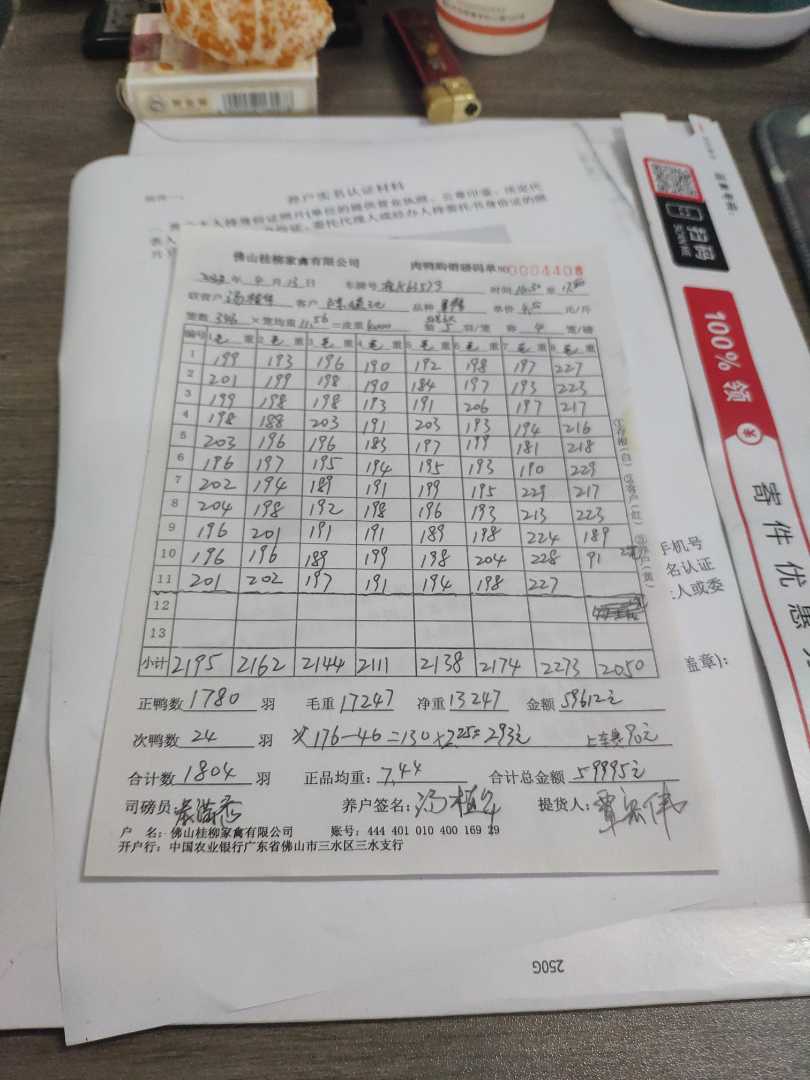 养户实名认证材料
佛山桂柳家禽有限公司 肉鸭购销磅码单 №0004408
年 4 月 13 日 车牌号 时间 至
客户 品种 单价 4.50 元/斤
笼数 346 × 笼均重 11.56 =皮重 4000 笼/磅
编号 1 毛 重 2 毛 重 3 毛 重 4 毛 重 5 毛 重 6 毛 重 7 毛 重 8 毛 重
1 199 193 196 190 192 198 197 227
2 201 199 198 190 184 197 193 223
3 199 198 198 193 191 206 197 217
4 198 188 203 191 203 193 194 216
5 203 196 196 183 197 199 181 218
6 196 197 195 194 195 193 190 229
7 202 194 189 191 199 195 229 217
8 204 198 192 198 196 193 213 223
9 196 201 191 191 189 198 224 189
10 196 196 189 199 198 204 228 91
11 201 202 197 191 194 198 227
12
13
小计 2195 2162 2144 2111 2138 2174 2273 2050
正鸭数 1780 羽 毛重 17247 净重 13247 金额 59612元
次鸭数 24 羽 次176-46=130×2.25=293元 上车费90元
合计数 1804 羽 正品均重: 7.44 合计总金额 59995元
司磅员: 养户签名: 汤植 提货人: 覃宏伟
户 名: 佛山桂柳家禽有限公司 账号: 444 401 010 400 169 29
开户行: 中国农业银行广东省佛山市三水区三水支行
(白) (红) (黄)
手机号
名认证
人或委
盖章):
扫码
100% 领
寄件优惠
250G